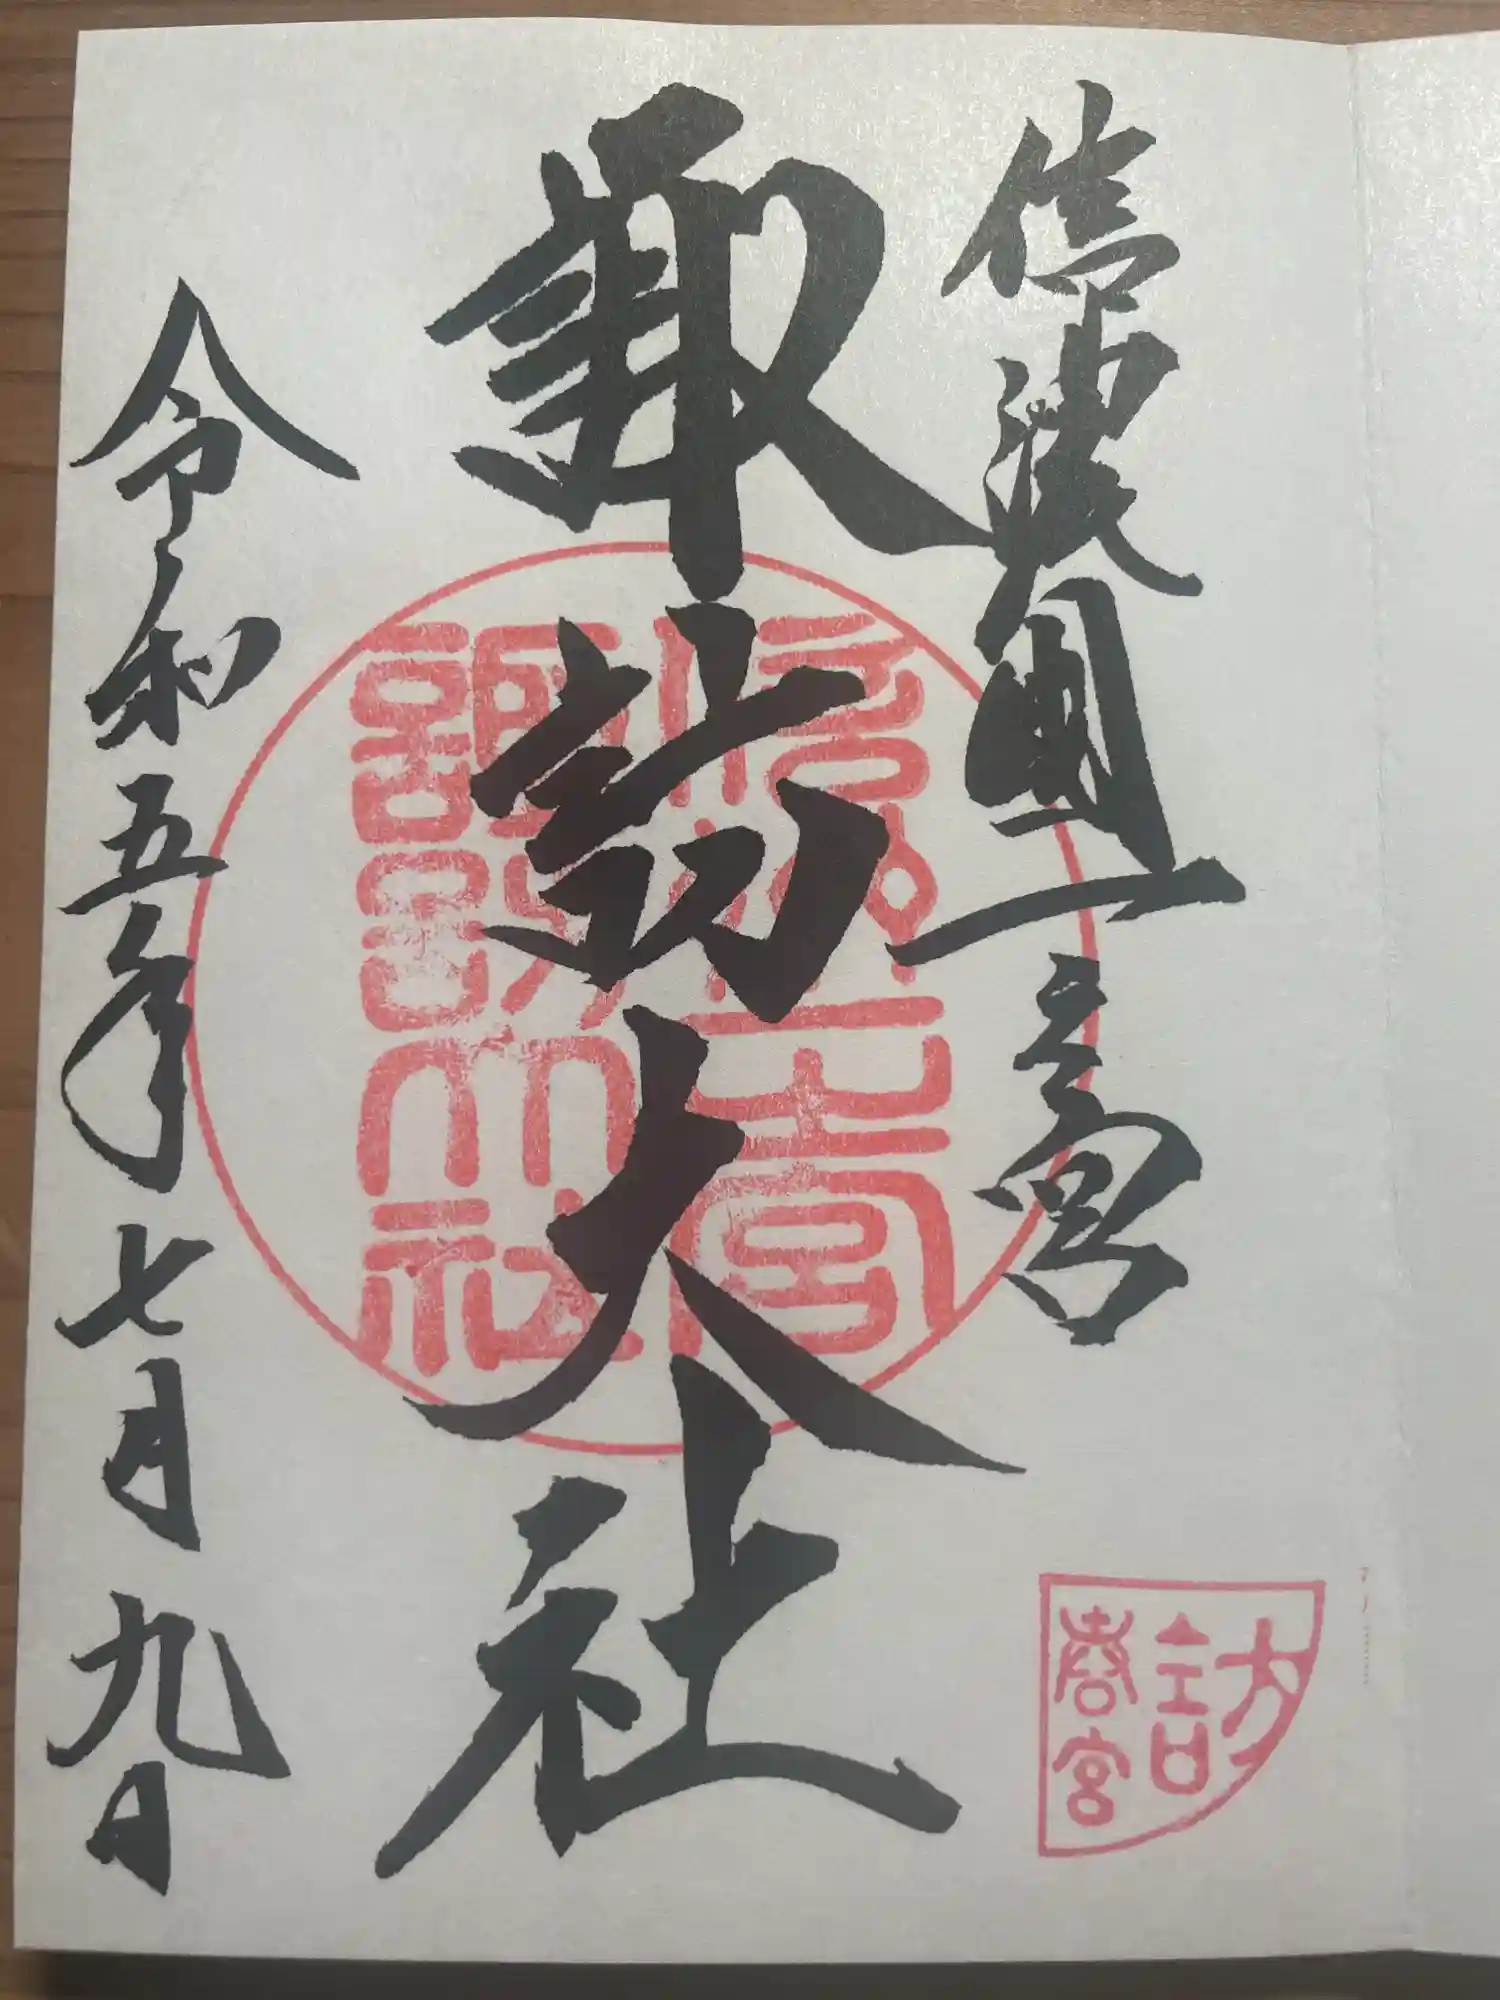 信濃國一之宮
諏訪大社
令和五年七月九日
信州一之宮
諏訪大社
訪
春宮